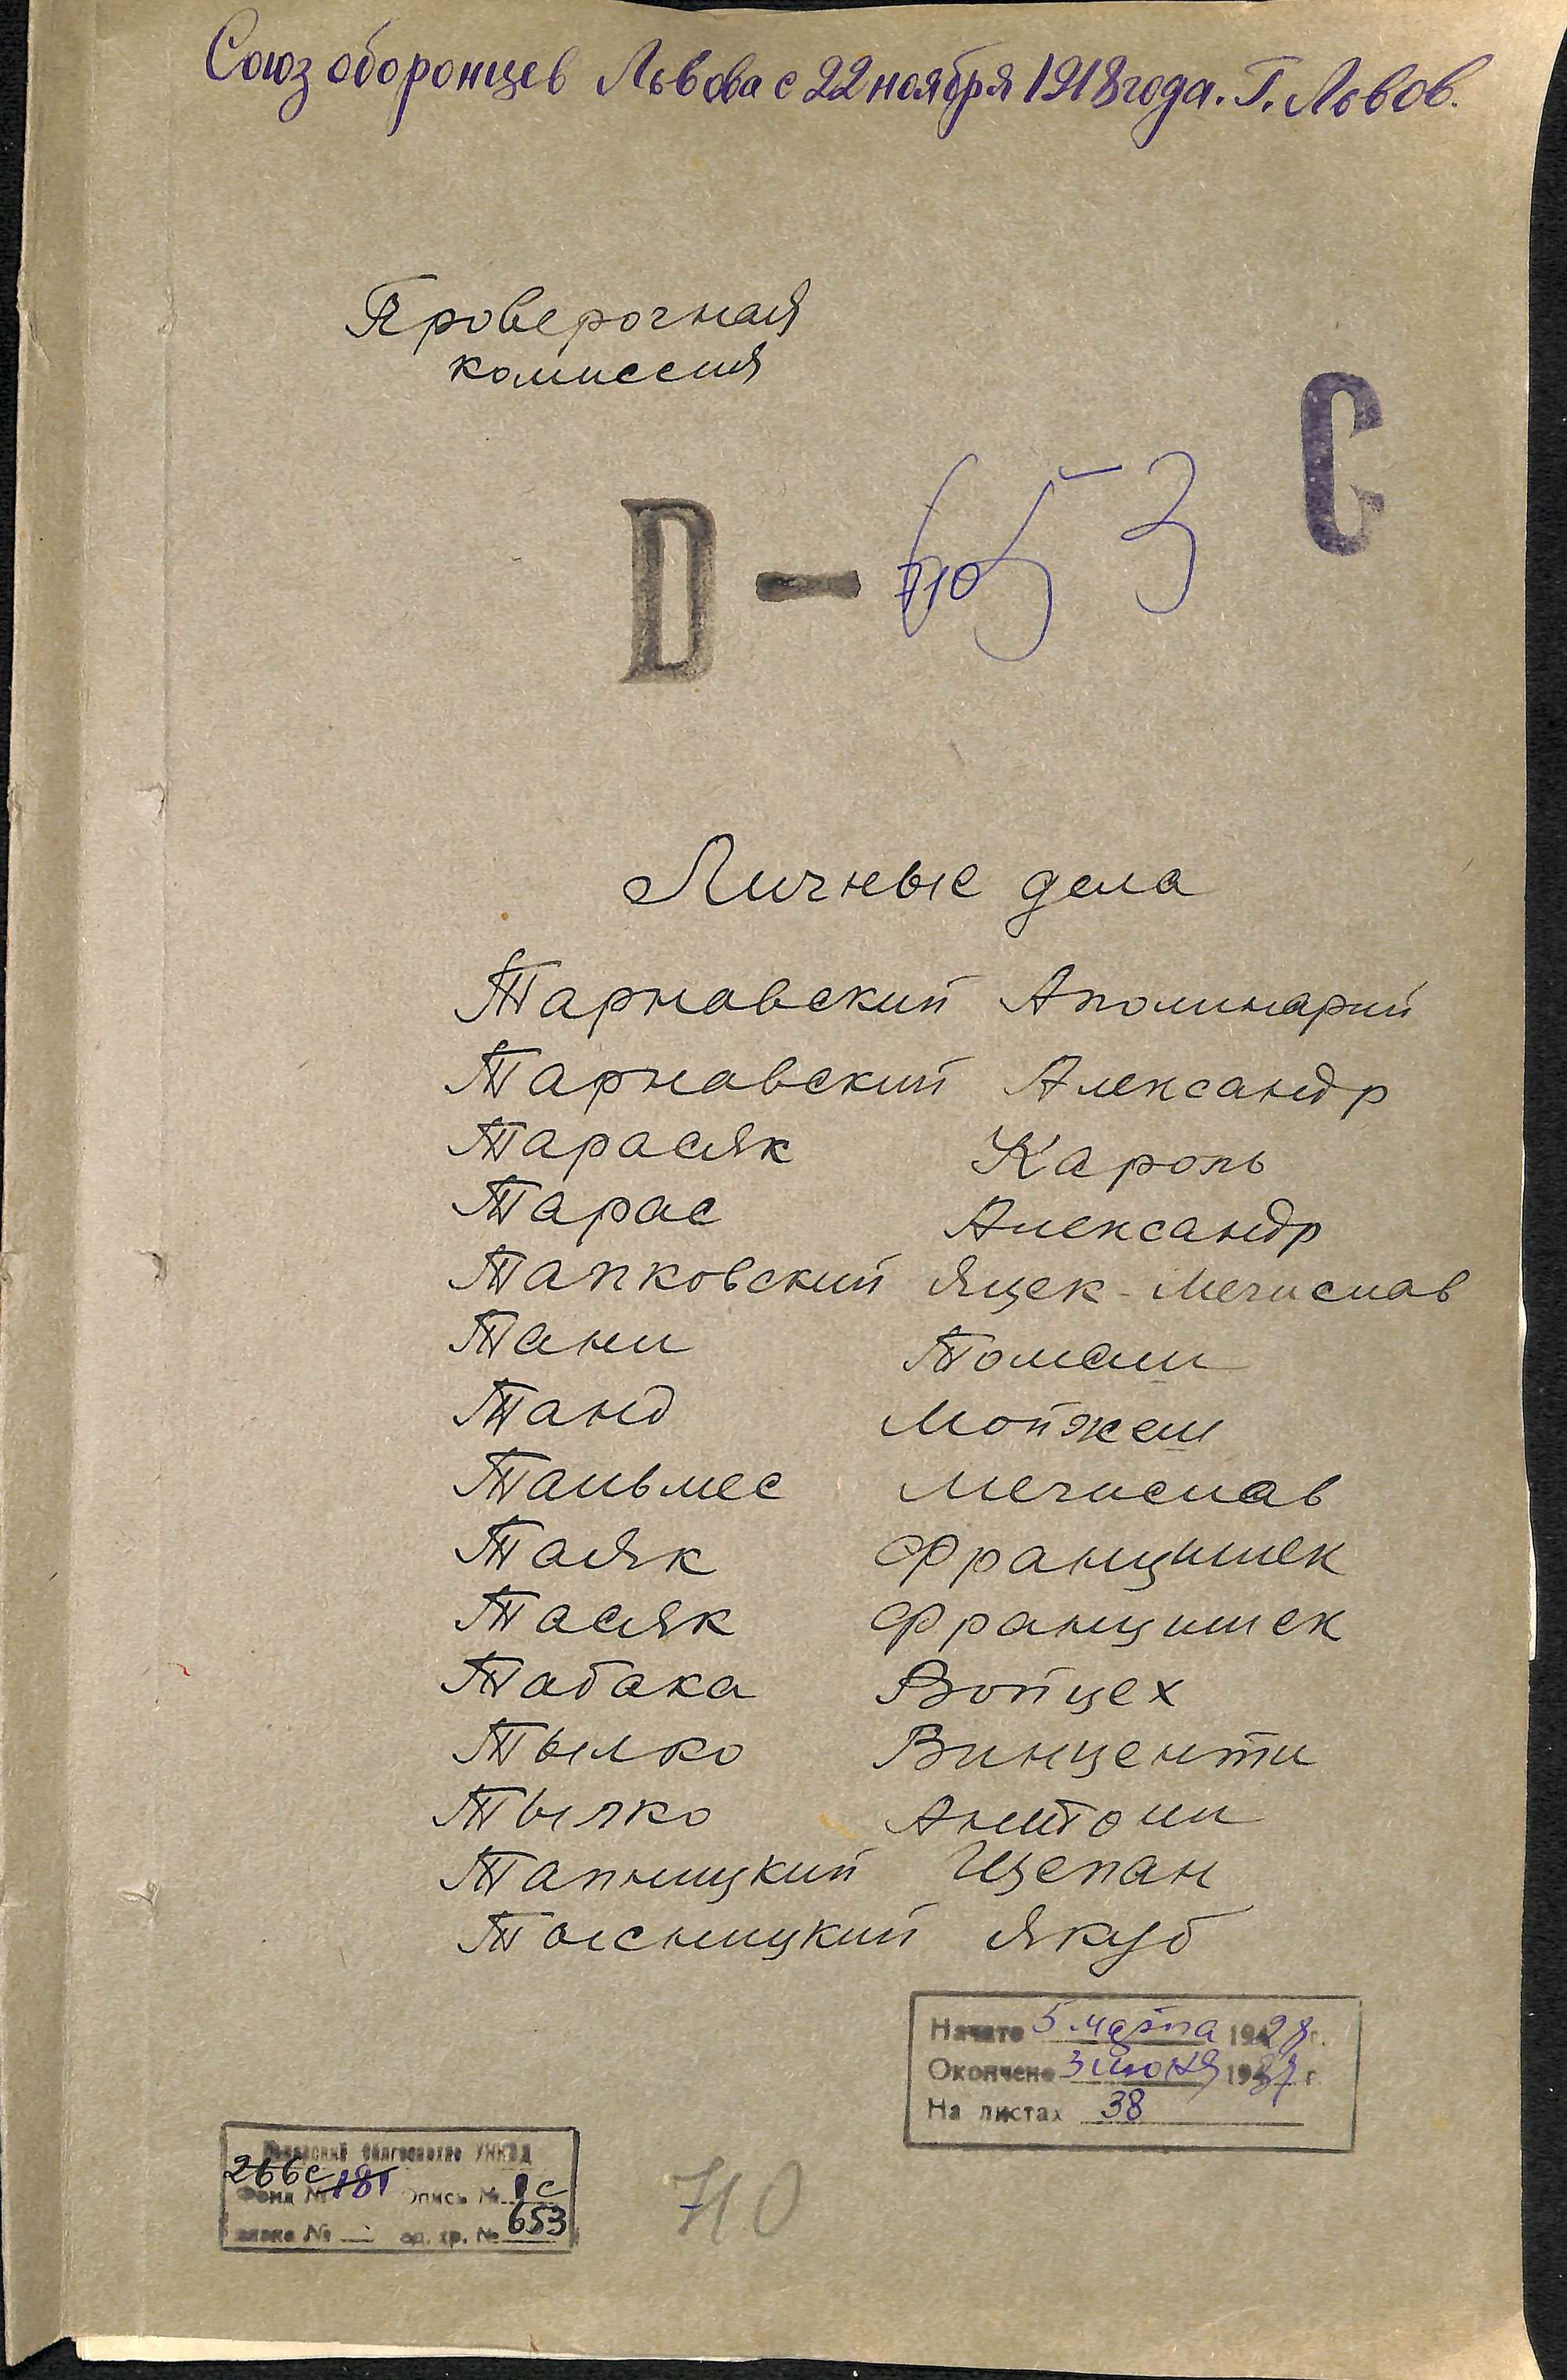 Союз оборонцев Львова с 22 ноября 1918 года. Г. Львов.
Проверочная
комиссия
С
D — 653
710
Личные дела
Тарнавский Аполинарий
Тарнавский Александр
Тарасяк Кароль
Тарас Александр
Тапковский Яцек-Мечислав
Танн Томаш
Танд Мойжеш
Тальмес Мечислав
Таяк Францишек
Тасяк Францишек
Табака Войцех
Тылко Винценти
Тылко Антони
Тапницкий Щепан
Якуб
Начато 5 марта 1928 г.
Окончено 3 июня 1937 г.
На листах 38
УНКВД
266с 181
Фонд № Опись № 1с
ед. хр. № 653
710